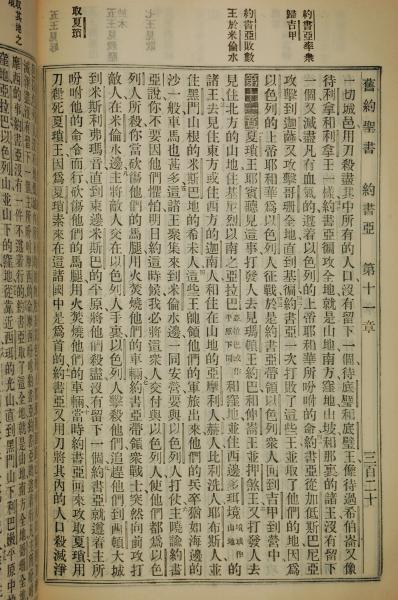 舊約聖書 約書亞 第十一章 三百二十
約書亞率衆
歸吉甲
約書亞敗數
王於米倫水
取夏瑣
一切城邑用刀殺盡其中所有的人口沒有留下一個待底璧和底璧王像待過希伯崙又像
待利拿和利拿王一樣約書亞徇攻全地就是山地南方窪地山坡和那裏的諸王沒有留下
一個又滅盡凡有血氣的遵着以色列的上帝耶和華所吩咐的命約書亞從加低斯巴尼亞
攻擊到迦薩又攻擊哥珊全地直到基徧約書亞一次打敗了這些王並取了他們的地因爲
以色列的上帝耶和華爲以色列人征戰於是約書亞帶領以色列衆人回到吉甲到營中
夏瑣王耶賓聽見這事打發人去見瑪頓王約巴和伸崙王並押煞王又打發人去
見住北方的山地住基尼烈以南之亞拉巴和窪地並住西邊多珥境
諸王去見住東方或住西方的迦南人和住在山地的亞摩利人赫人比利洗人耶布斯人並
住黑門山根的米斯巴地的希未人這些王帥領他們的軍旅出來他們的兵卒猶如海邊的
沙一般車馬也甚多這諸王聚集來到米倫水邊一同安營要與以色列人打仗主曉諭約書
亞說你不要因他們懼怕明日約這時候我必將這衆人交付與以色列人使他們都爲以色
列人所殺你當砍傷他們的馬腿用火焚燒他們的車輛約書亞帶領衆戰士突然向前攻打
敵人在米倫水邊主將敵人交在以色列人手裏以色列人擊殺他們追趕他們到西頓大城
到米斯利弗瑪音直到東邊米斯巴的平原將他們殺盡沒有留下一個約書亞就遵着主所
吩咐他的命令而行砍傷他們的馬腿用火焚燒他們的車輛當時約書亞回來攻取夏瑣用
刀殺死夏瑣王因爲夏瑣素來在這諸國中是爲首的約書亞又用刀將其內的人口殺滅淨